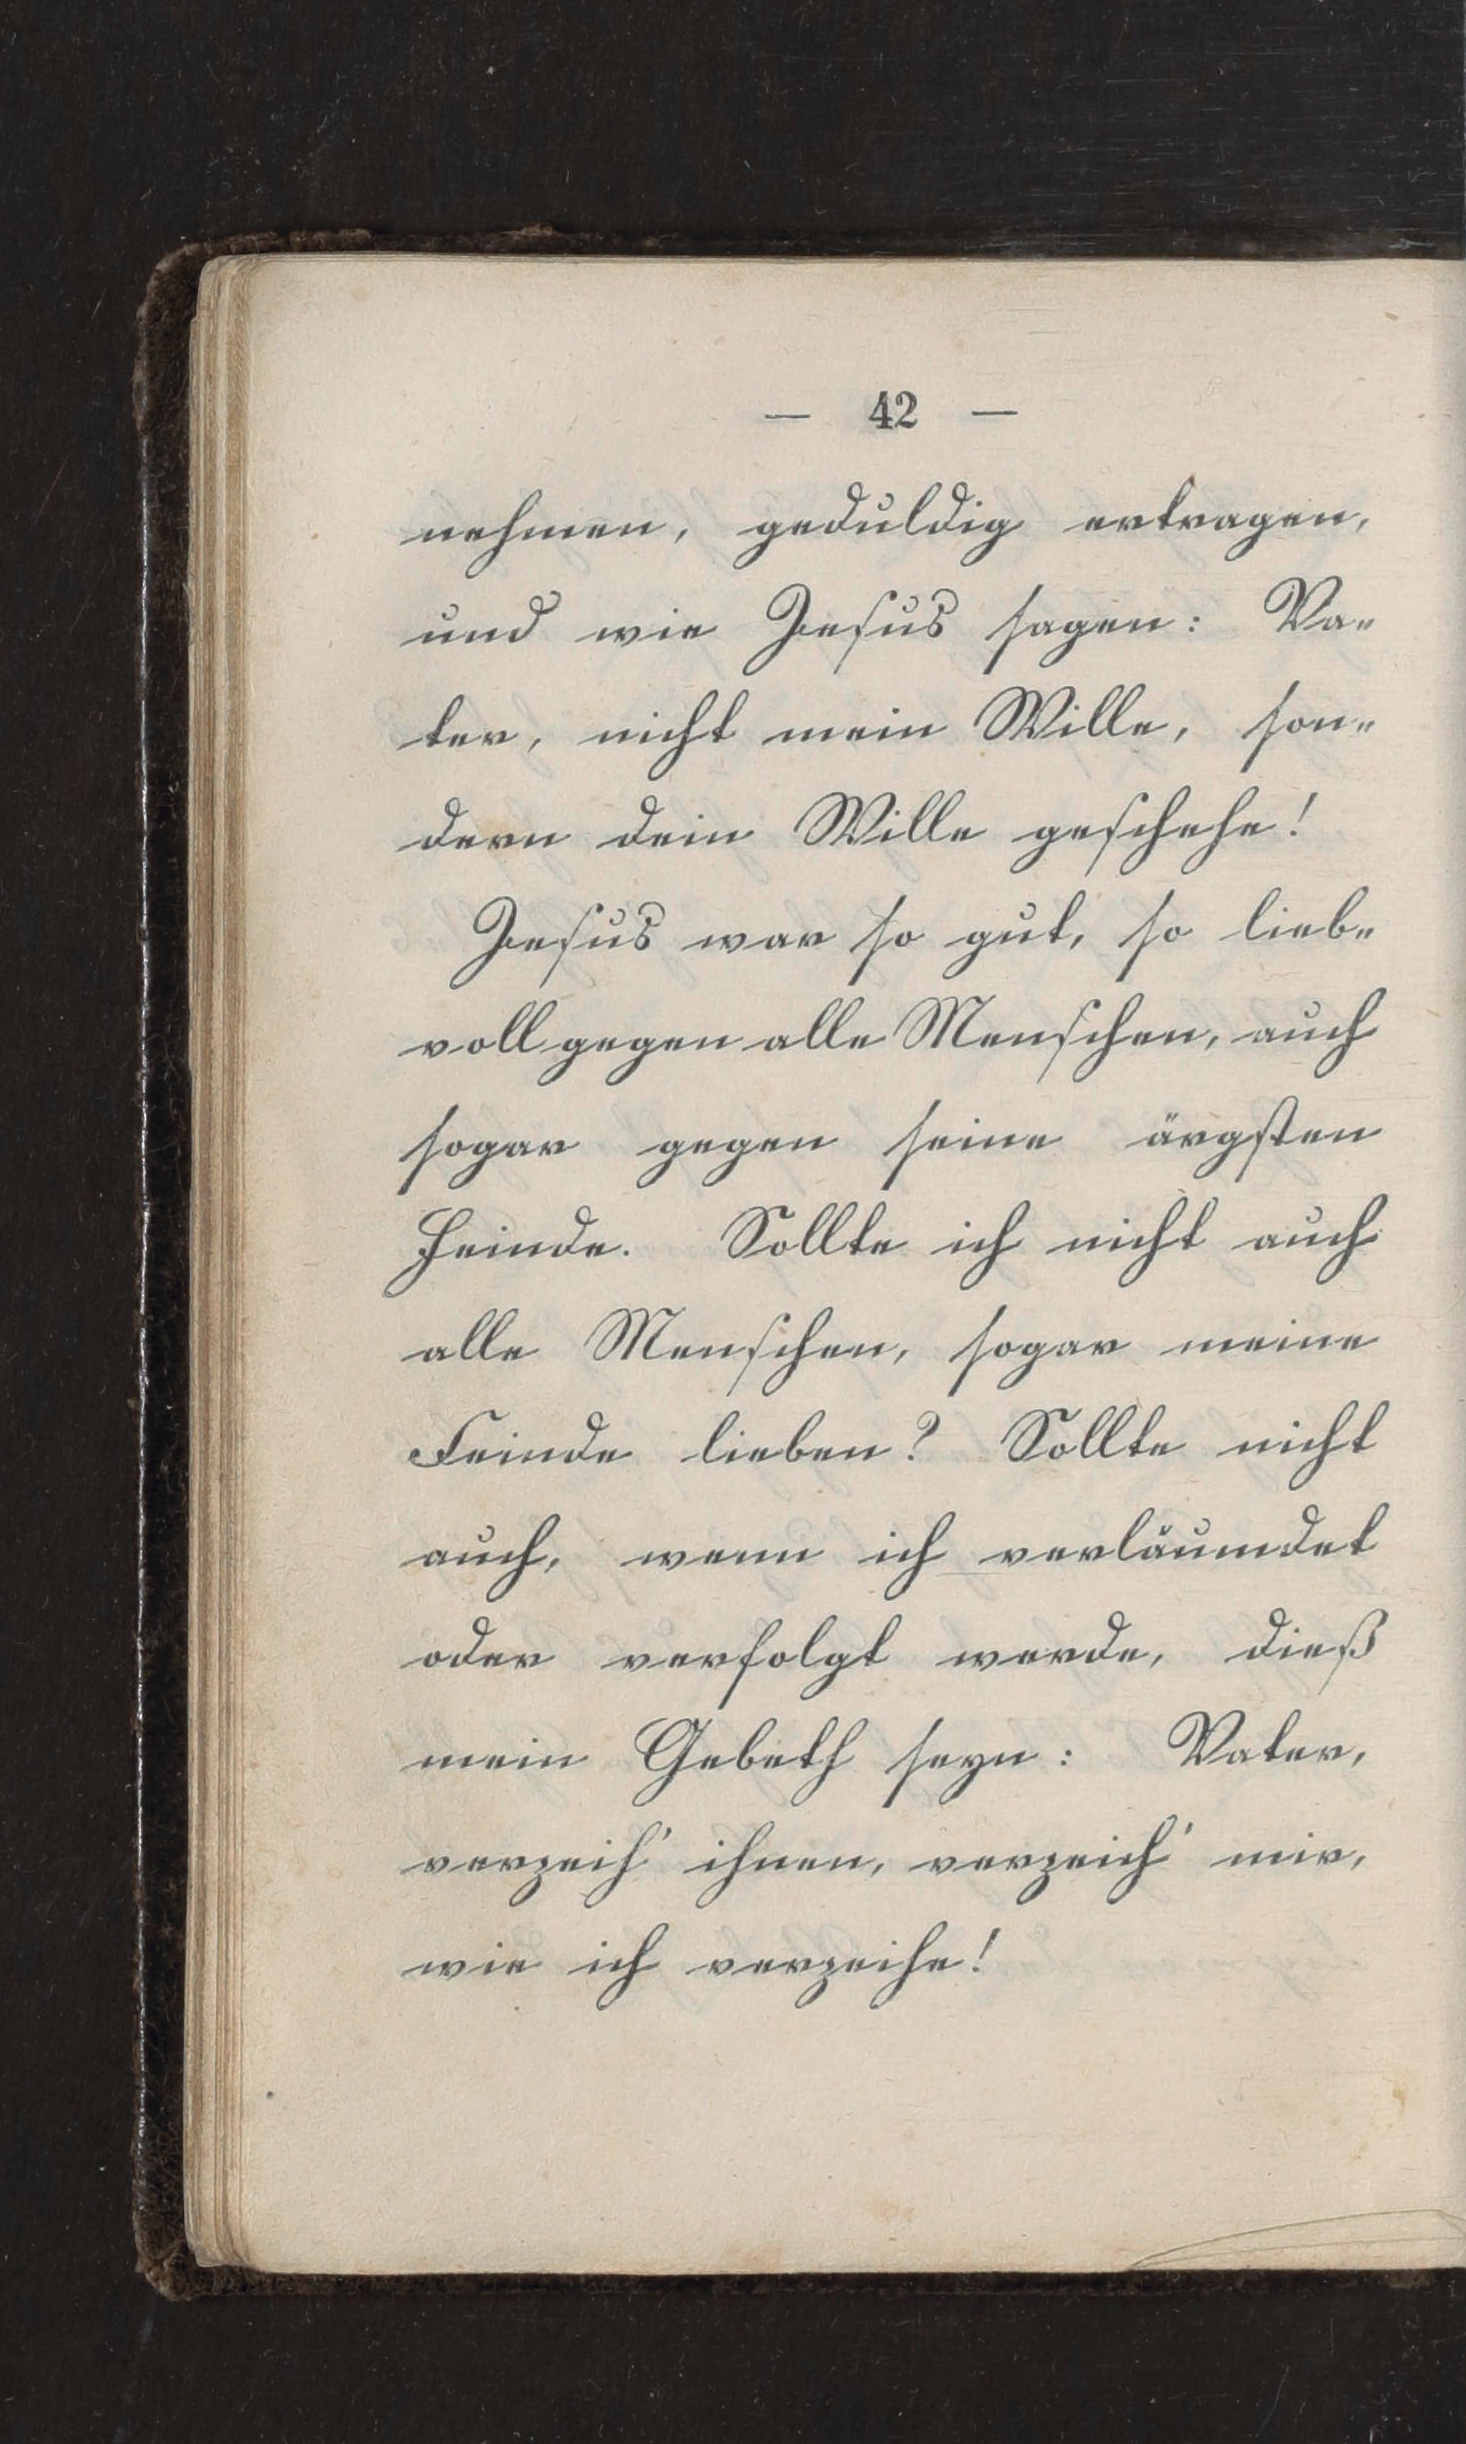 — 42 —
nehmen, geduldig ertragen,
und wie Jesus sagen: Va-
ter, nicht mein Wille, son-
dern dein Wille geschehe!
Jesus war so gut, so lieb-
voll gegen alle Menschen, auch
sogar gegen seine ärgsten
Feinde. Sollte ich nicht auch
alle Menschen, sogar meine
Feinde lieben? Sollte nicht
auch, wenn ich verläumdet
oder verfolgt werde, dieß
mein Gebeth seyn: Vater,
verzeih' ihnen, verzeich' mir,
wie ich verzeihe!